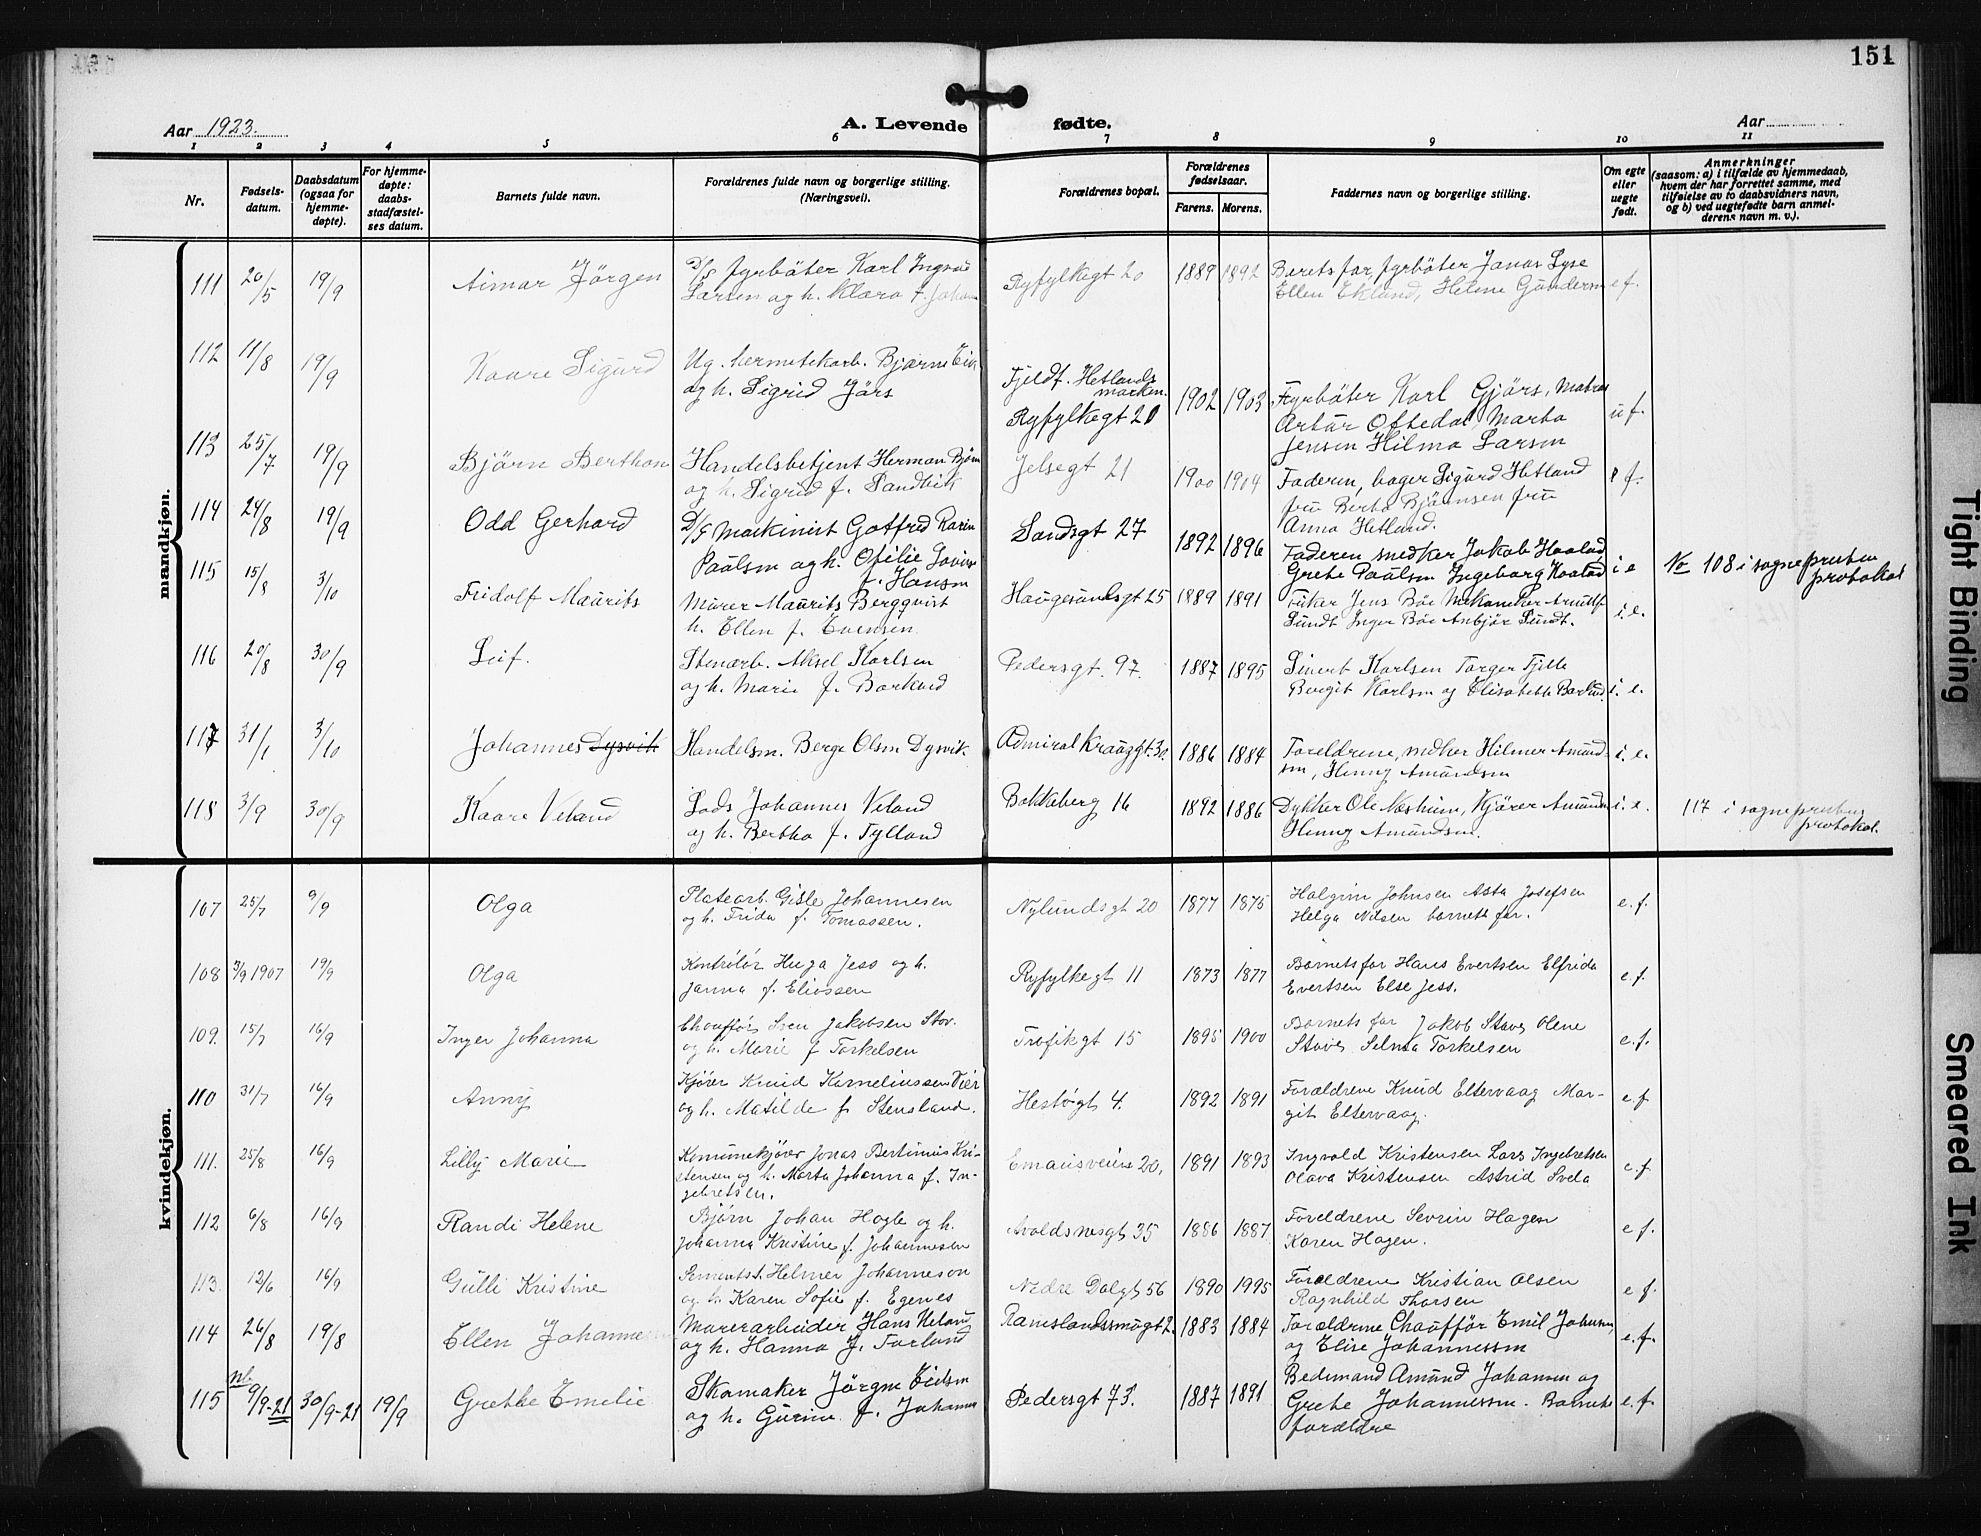 151
Aar 1923.
A. Levende fødte.
Aar
1 2 3 4 5 6 7 8 9 10 11
Nr.
Fødsels-
datum.
Daabsdatum
(ogsaa for
hjemme-
døpte).
For hjemme-
døpte:
daabs-
stadfæstel-
ses datum.
Barnets fulde navn.
Forældrenes fulde navn og borgerlige stilling.
(Næringsvei).
Forældrenes bopæl.
Forældrenes
fødselsaar.
Farens. Morens.
Faddernes navn og borgerlige stilling.
Om egte
eller
uegte
født.
Anmerkninger
(saasom: a) i tilfælde av hjemmedaab,
hvem der har forrettet samme, med
tilføielse av to daabsvidners navn,
og b) ved uegtefødte barn anmel-
derens navn m. v.).
mandkjøn.
111 20/5 19/9 Aimar Jörgen
fyrböter Karl Ingvald
Larsen og h. Klara f. Johan
Ryfylkegt 20 1889 1892
Barets far fyrböter Jonas Lyse
Ellen Eklund, Helene Gundersen e f.
112 11/8 19/9 Kaare Sigurd
Ug. hermetikarb. Bjarne Eie
og h. Sigrid Jörs
Fjeldf. Hetlands
marken.
Ryfylkegt 20 1902 1903
Fyrböter Karl Gjörs, Matros
Artur Oftedal, Marta
Jensen Hilma Larsen u f.
113 25/7 19/9 Björn Berthon
Handelsbetjent Herman Björn
og h. Sigrid f. Sandvik
Jelsegt 21 1900 1904
Faderen, bager Sigurd Hetland
fru Berta Björnsen fru
Anna Hetland. e f.
114 24/8 19/9 Odd Gerhard
D/S Maskinist Gotfred
Paulsen og h. Ofilie Lovise
f. Hansen
Sandsgt 27 1892 1896
Faderen snedker Jakob Haaland
Grete Paulsen Ingeborg Haaland i e
No 108 i sogneprestens
protokol
115 15/8 3/10 Fridolf Maurits
Murer Maurits Bergqvist
h. Ellen f. Evensen
Haugesundsgt 25 1889 1891
Jens Böe Mekaniker Arnulf
Sundt Inger Böe Anbjör Sundt. i. e.
116 20/8 30/9 Leif.
Stenarb. Aksel Karlsen
og h. Marie f. Barkved
Pedersgt. 97. 1887 1895
Sivert Karlsen Torger Tjelle
Bergit Karlsen og Elisabeth Barkved i. e.
117 31/1 3/10 Johannes Dysvik
Handelsm. Berge Olsen Dysvik
Admiral Kruuggt. 30. 1886 1884
Foreldrene, snedker Hilmer Amund-
sen, Henny Amundsen i. e.
118 3/9 30/9 Kaare Veland
Lods Johannes Veland
og h. Bertha f. Tylland
Bakkeberg 16 1892 1886
Dykker Ole Næsheim, Kjörer Amundsen
Henny Amundsen. i. e.
117 i sogneprestens
protokol.
kvindekjøn.
107 25/7 9/9 Olga
Platearb. Gisle Johannesen
og h. Frida f. Tomassen.
Nylundsgt 20 1877 1875
Halgrim Johnsen Asta Josefsen
Helga Nilsen barnets far. e. f.
108 3/9 1907 19/9 Olga
Kontrölör Hugo Jess og h.
Janna f. Eliassen
Ryfylkegt 11 1873 1877
Barnets far Hans Evertsen Elfrida
Evertsen Else Jess. e f.
109. 15/7 16/9 Inger Johanna
Chauffør Sven Jakobsen Stav.
og h. Marie f Torkelsen
Trafikgt 15 1895 1900
Barnets far Jakob Stave Olene
Stave Selma Torkelsen e. f.
110 31/7 16/9 Anny
Kjörer Knud Korneliussen Vier
og h. Matilde f. Stensland.
Hestögt 4. 1892 1891
Forældrene Knud Eltervaag Mar-
git Eltervaag. e. f
111. 25/8 16/9 Lilly Marie
Komunekjörer Jonas Bertinius Kri-
stensen og h. Marta Johanna f. In-
gebretsen.
Emausveien 20. 1891 1893
Ingvald Kristensen Lars Ingebretsen
Olava Kristensen Astrid Sveda e. f
112 6/8 16/9 Randi Helene
Bjørn Johan Hagle og h.
Johanna Kristine f. Johannesen
Avaldsnesgt 35 1886 1887
Foreldrene Sevrin Hagen
Karen Hagen. e f.
113. 12/6 16/9 Gulli Kristine
Sementst. Helmer Johannesen
og h. Karen Sofie f. Egenes
Nedre Dalgt 56 1890 1995
Foreldrene Kristian Olsen
Ragnhild Thorsen e f.
114 26/8 19/8 Ellen Johanne
Murerarbeider Hans Heland
og h. Hanna f. Torland
Ramslandssmugt 2. 1883 1884
Forældrene Chaufför Emil Johansen
og Elise Johannessen e. f.
115 nb. 9/9-21 30/9-21 19/9 Grethe Emelie
Skomaker Jörgen Eielsen
og h. Gurine f. Johannes
Pedersgt 73. 1887 1891
Bedemand Amund Johansen og
Grete Johannessen. Barnets
forældre e. f.
Tight Binding
Smeared Ink